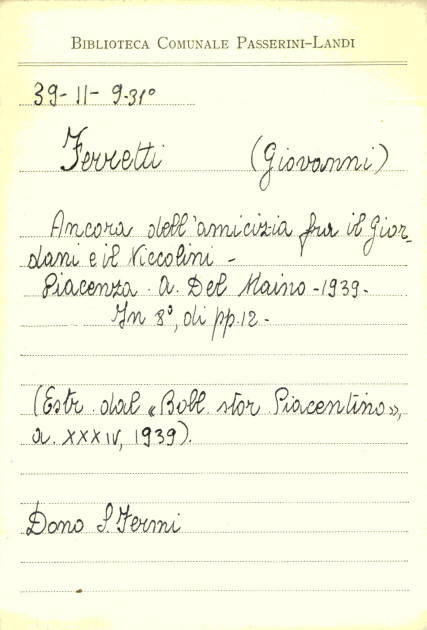 BIBLIOTECA COMUNALE PASSERINI-LANDI
39-11-9-31°
Ferretti (Giovanni)
Ancora dell'amicizia fra il Gior-
dani e il Niccolini -
Piacenza. A. Del Maino - 1939 -
In 8°, di pp. 12 -
(Estr. dal «Boll. stor. Piacentino»,
a. XXXIV, 1939).
Dono S. Fermi